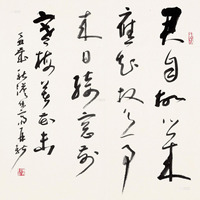 君自故乡来
应知故乡事
来日绮窗前
寒梅着花未